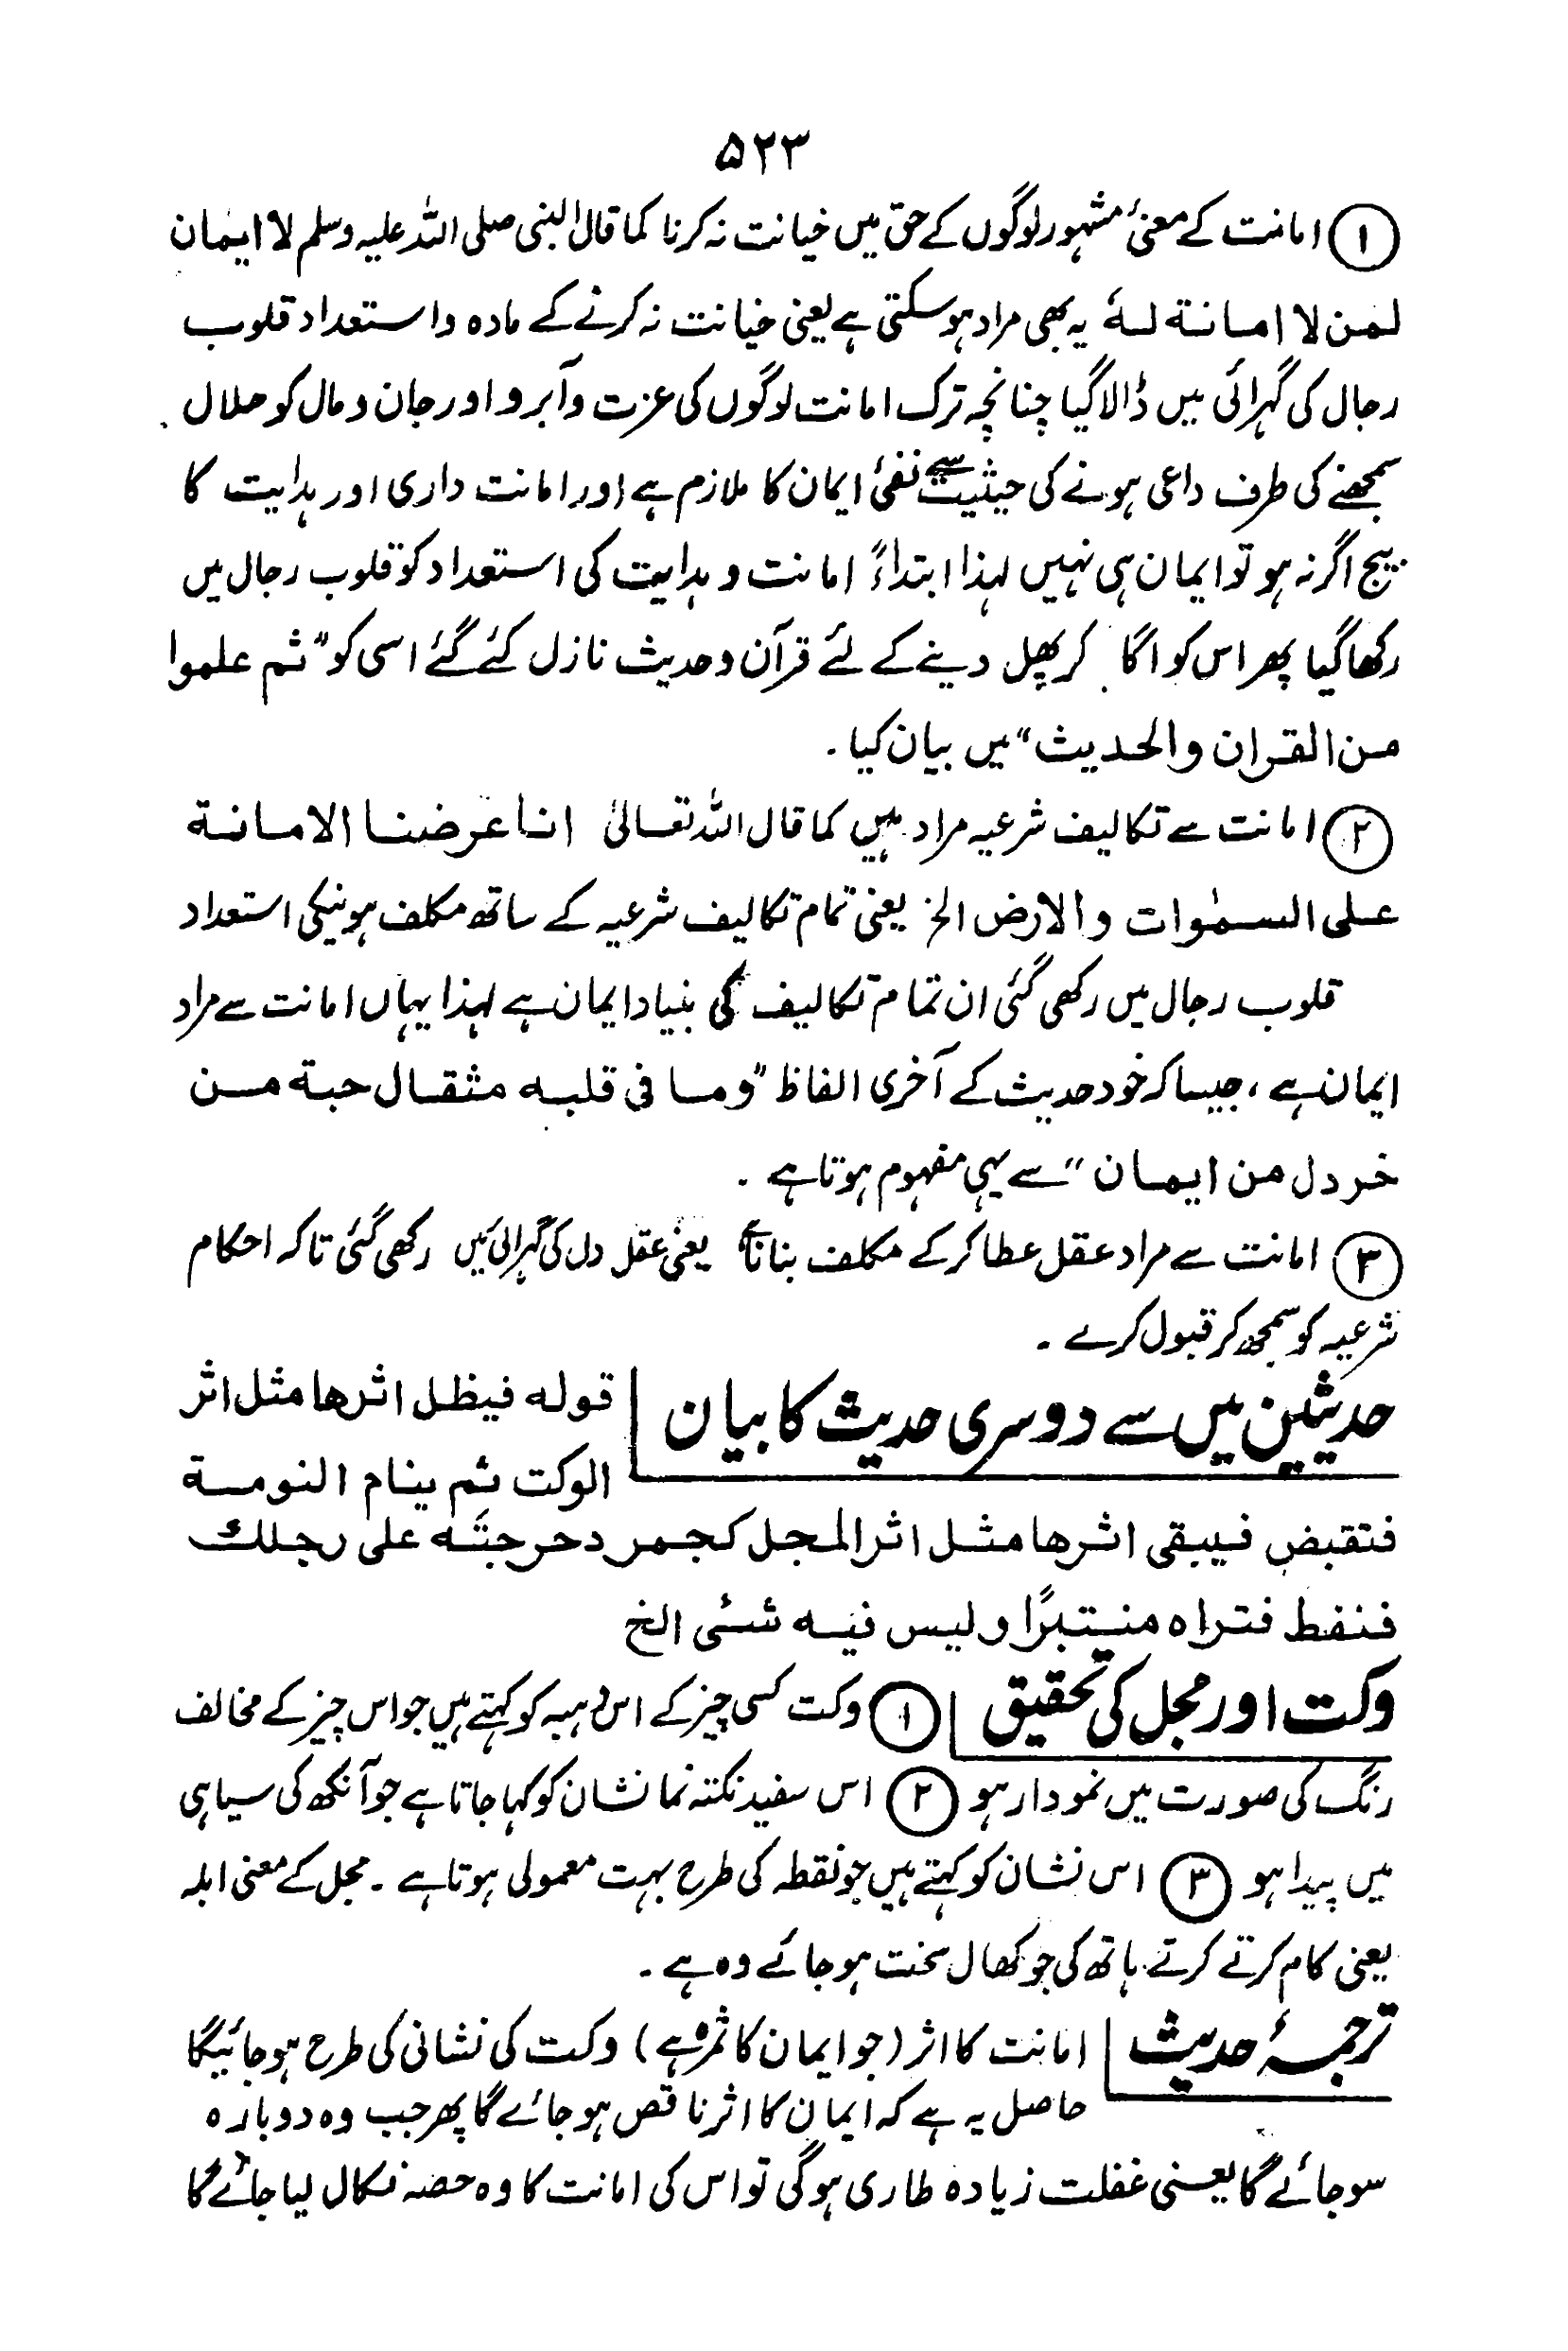 ۵۲۳
① امانت کے معنیٔ مشہور لوگوں کے حق میں خیانت نہ کرنا کما قال النبی صلی اللہ علیہ وسلم لا ایمان
لمن لا امانة لهٗ یہ بھی مراد ہو سکتی ہے یعنی خیانت نہ کرنے کے مادہ و استعداد قلوب
رجال کی گہرائی میں ڈالا گیا چنانچہ ترک امانت لوگوں کی عزت و آبرو اور جان و مال کو حلال
سمجھنے کی طرف داعی ہونے کی حیثیت سے نفئ ایمان کا ملازم ہے اور امانت داری اور ہدایت کا
بیج اگر نہ ہو تو ایمان ہی نہیں لہذا ابتداءً امانت و ہدایت کی استعداد کو قلوب رجال میں
رکھا گیا پھر اس کو اگا کر پھل دینے کے لئے قرآن و حدیث نازل کئے گئے اسی کو "ثم علموا
من القران والحدیث" میں بیان کیا۔
② امانت سے تکالیف شرعیہ مراد ہیں کما قال اللہ تعالیٰ انا عرضنا الامانة
علی السمٰوات والارض الخ یعنی تمام تکالیف شرعیہ کے ساتھ مکلف ہونیکی استعداد
قلوب رجال میں رکھی گئی ان تمام تکالیف کی بنیاد ایمان ہے لہذا یہاں امانت سے مراد
ایمان ہے، جیسا کہ خود حدیث کے آخری الفاظ "وما فی قلبه مثقال حبة من
خردل من ایمان" سے یہی مفہوم ہوتا ہے۔
③ امانت سے مراد عقل عطا کر کے مکلف بنانا ہے یعنی عقل دل کی گہرائی میں رکھی گئی تاکہ احکام
شرعیہ کو سمجھ کر قبول کرے۔
حدیثین میں سے دوسری حدیث کا بیان قوله فیظل اثرها مثل اثر
الوکت ثم ینام النومة
فتقبض فیبقی اثرها مثل اثر المجل کجمر دحرجتَه علی رجلك
فنفط فتراه منتبرًا ولیس فیه شئی الخ
وکت اور مجل کی تحقیق ① وکت کسی چیز کے اس دہبہ کو کہتے ہیں جو اس چیز کے مخالف
رنگ کی صورت میں نمودار ہو ② اس سفید نکتہ نما نشان کو کہا جاتا ہے جو آنکھ کی سیاہی
میں پیدا ہو ③ اس نشان کو کہتے ہیں جو نقطہ کی طرح بہت معمولی ہوتا ہے۔ مجل کے معنی ابلہ
یعنی کام کرتے کرتے ہاتھ کی جو کھال سخت ہو جائے وہ ہے۔
ترجمۂ حدیث امانت کا اثر (جو ایمان کا ثمرہ ہے) وکت کی نشانی کی طرح ہو جائیگا
حاصل یہ ہے کہ ایمان کا اثر ناقص ہو جائے گا پھر جب وہ دوبارہ
سو جائے گا یعنی غفلت زیادہ طاری ہوگی تو اس کی امانت کا وہ حصہ نکال لیا جائے گا